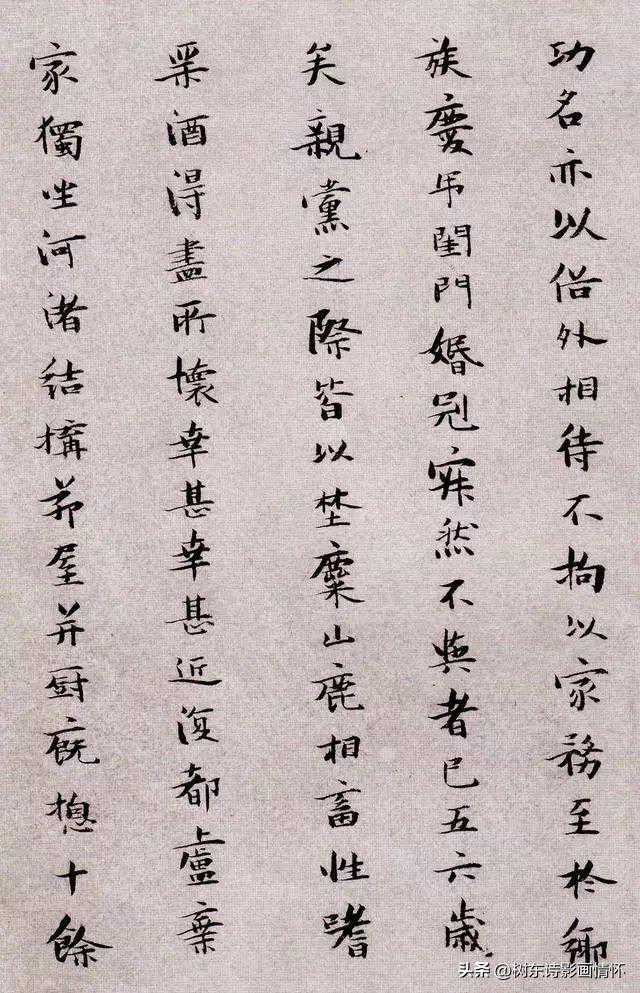 功名亦以俗外相待不拘以家務至於鄉
族慶吊閨門婚冠寂然不與者已五六歲
矣親黨之際皆以埜麋山鹿相畜性嗜
琹酒得盡所懷幸甚幸甚近復都盧棄
家獨坐河渚結構茆屋并厨廐揔十餘
头条 @树东诗影画情怀